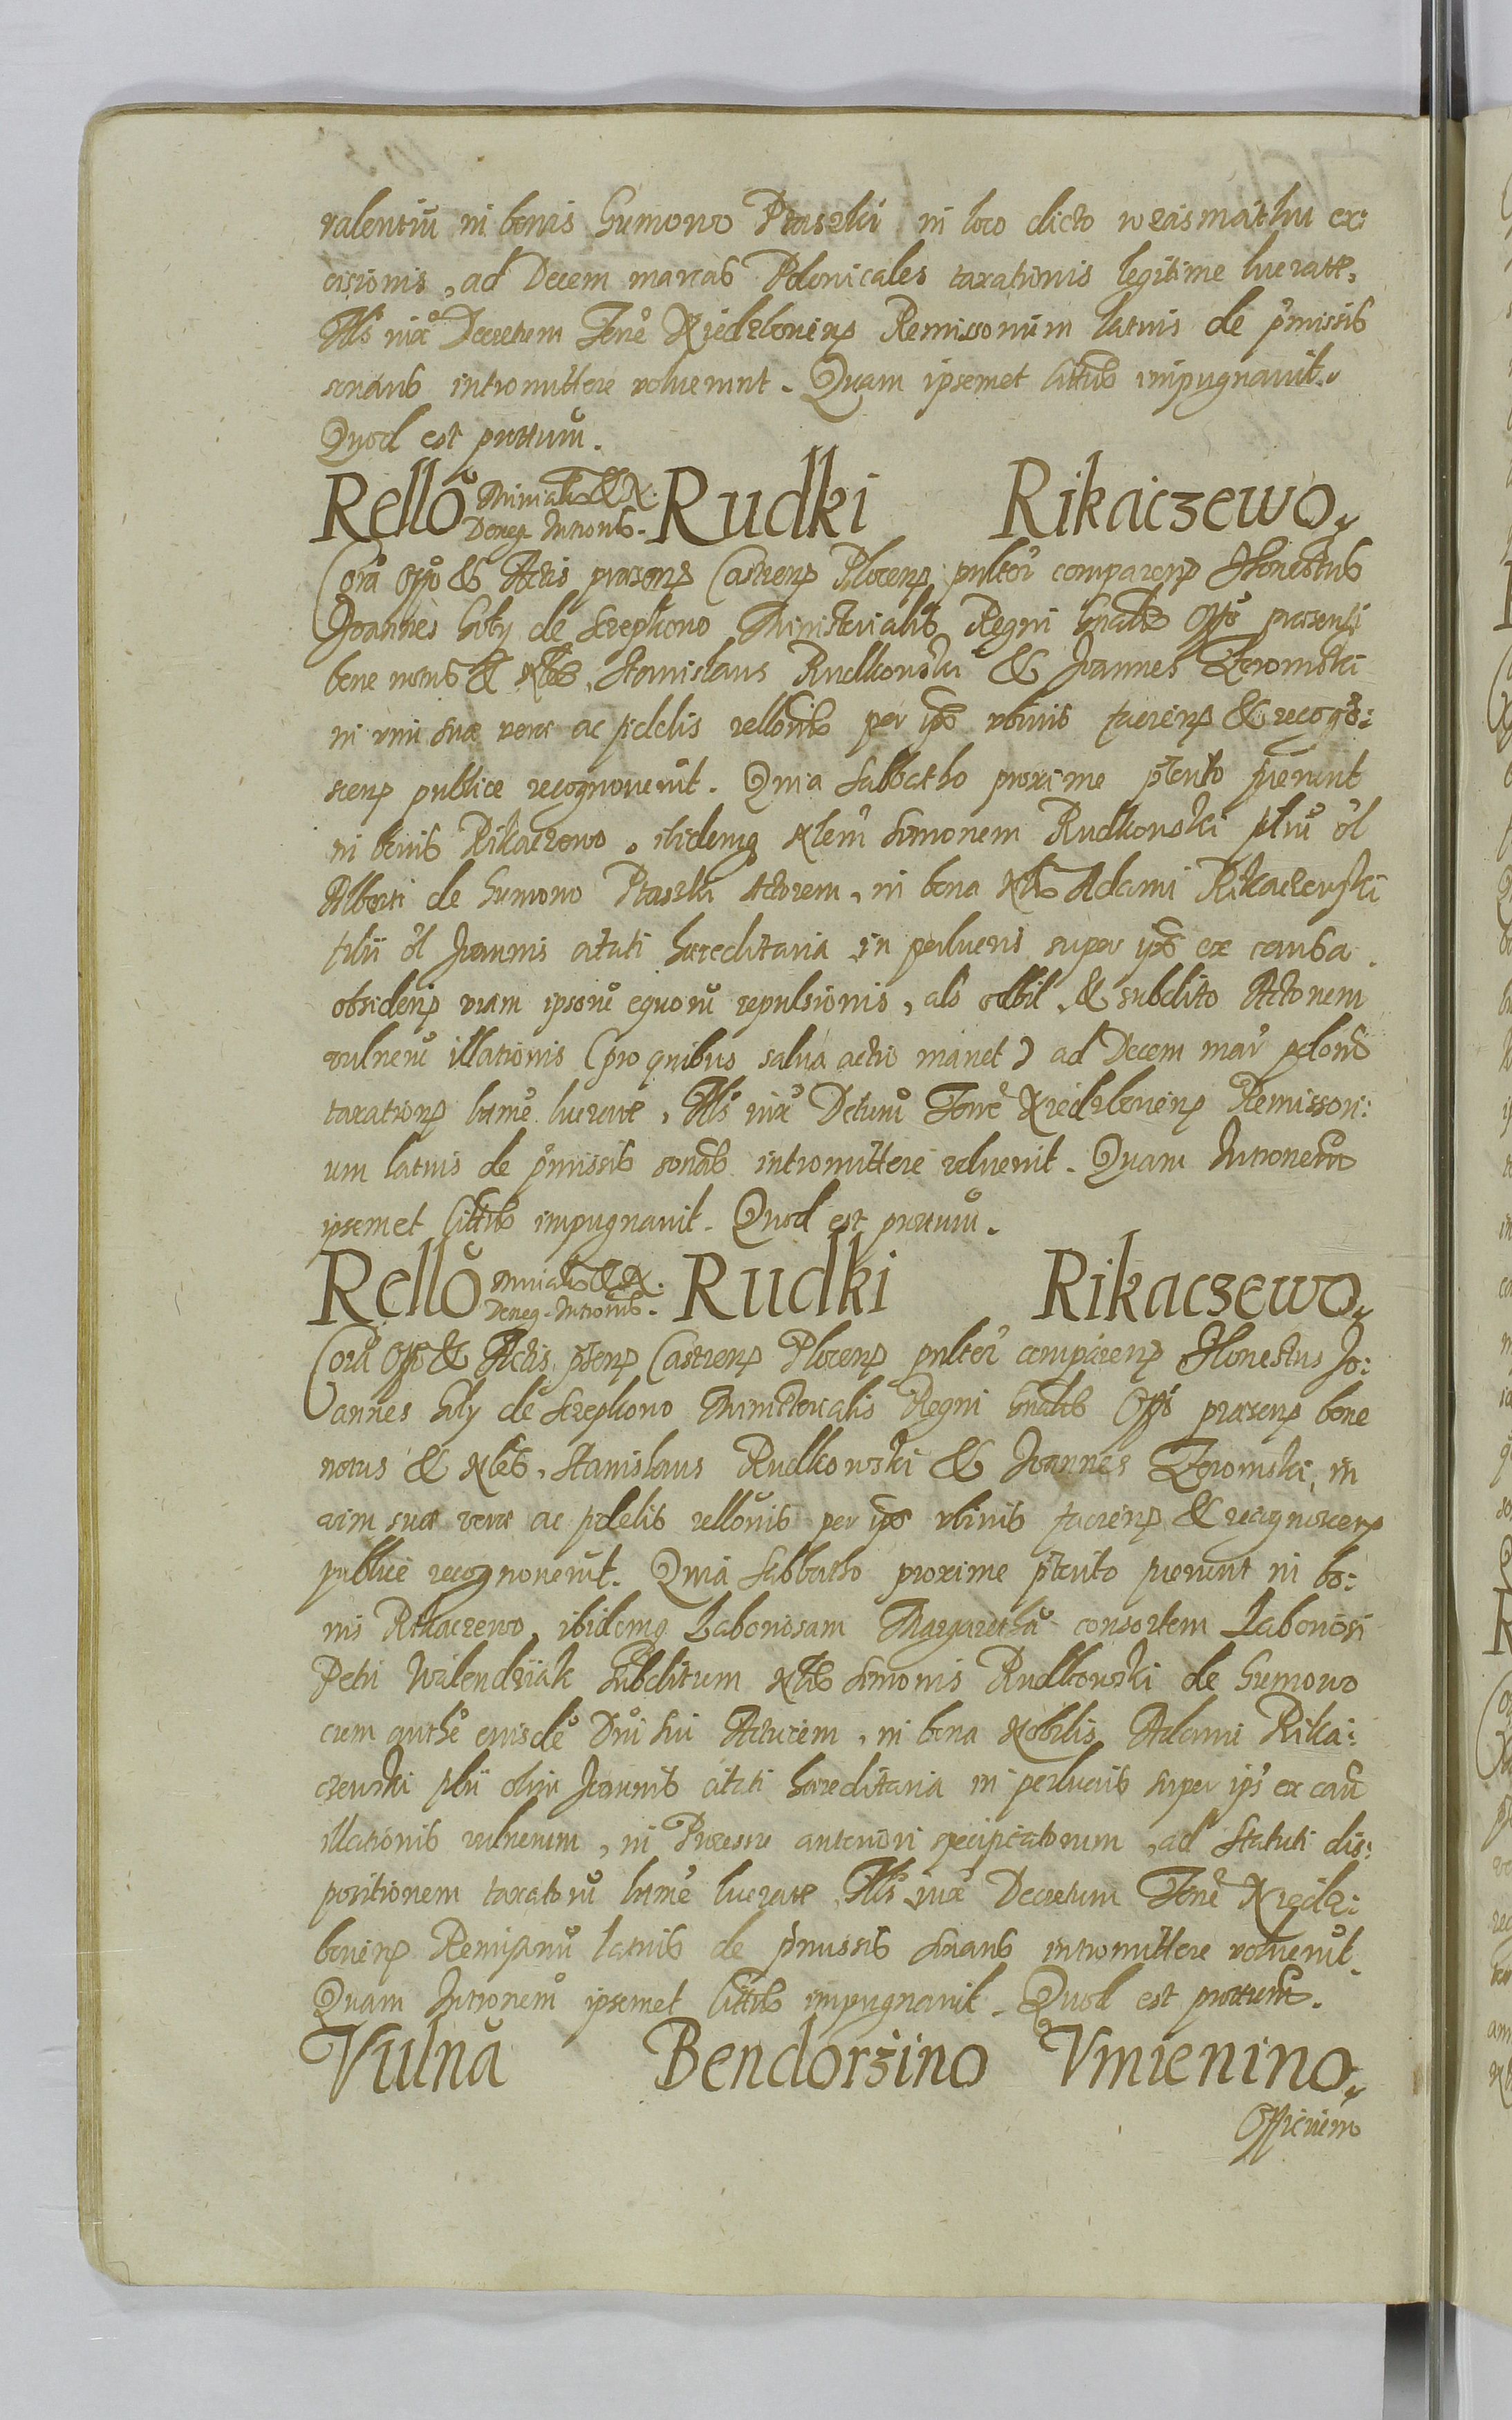 valentiũ in bonis Gumowo Ptaszki in loco dicto wzasmathu ex:
cisionis, ad Decem marcas Polonicales taxationis legitime lucratę.
Als iux Decretum Terrę Niedzboriens Remissorium latius de pmissis
sonans intromittere voluerunt. Quam ipsemet Cittus impugnavit.
Quod est prottum.
Rello Mnialis & N. Deneg. Intronis. Rudki Rikaiczewo.
Corã Offo & Actis præsens Castrens Plocens psolr comparens Honestus
Joannes Goly de Szrepkowo Ministerialis Regni Gnalis Offo præsenti
bene notus & Nbles, Stanislaus Rudkowski & Joannes Zeromski
in vim suæ veræ ac fidelis rellonis per ipõs vbinis faciens & recogo:
scens publice recognoverũt. Quia Sabbatho proxime pterito fuerunt
in bonis Rikaczewo, ibidemq Nlem Simonem Rudkowski filiũ ol
Alberti de Gumowo Ptaszki Actorem, in bona Nlis Adami Rikaczewski
filii ol Joannis citati hæreditaria in perlucris super ipõ ex causa
obsidens viam ipsorũ equorũ repulsionis, als odbil, & subdito Actorem
vulnerũ illationis (pro quibus salva actio manet) ad Decem mar polons
taxations ltime lucratę, Als iux Detum Terrę Niedzboriens Remissori:
um latius de pmissis sonans intromittere voluerũt. Quam Intronem
ipsemet Cittus impugnavit. Quod est prottum.
Rello Mnialis & N. Deneg. Intronis. Rudki Rikaczewo.
Corã Offo & Actis psens Castrens Plocens psolr comparens Honestus Jo:
annes Goly de Szrepkowo Ministerialis Regni Gnalis Offo præsens bene
notus & Nbles, Stanislaus Rudkowski & Joannes Zeromski, in
vim suæ veræ ac fidelis rellonis per ipõs vbinis faciens & recognoscens
publice recognoverũt. Quia Sabbatho proxime pterito fuerunt in bo:
nis Rikaczewo, ibidemq Laboriosam Margarethã consortem Laboriosi
Petri Walendziak Subditum Nlis Simonis Rudkowski de Gumowo
cum authe eiusdẽ Dni sui Actricem, in bona Nobilis Adami Rika:
czewski filii olim Joannis citati hæreditaria in perlucris super ips ex cau
illationis vulnerum, in Processu anteriori specificatorum, ad Statuti dis:
positionem taxatorũ ltime lucratę, Als iux Decretum Terrę Niedz:
boriens Remissoriũ latius de pmissis sonans intromittere voluerũt.
Quam Intronem ipsemet Cittus impugnavit. Quod est prottum.
Vulna Bendorzino Vmienino.
Officium